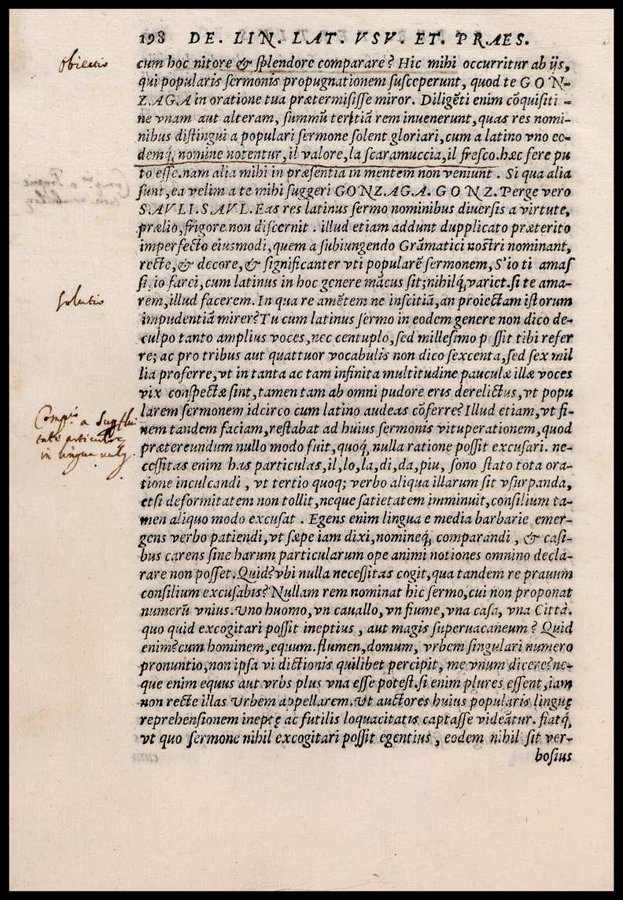 198 DE. LIN. LAT. VSV. ET. PRAES.
obiectio
cum hoc nitore & splendore comparare? Hic mihi occurritur ab ijs,
qui popularis sermonis propugnationem susceperunt, quod te GON-
ZAGA in oratione tua prætermisisse miror. Diligẽti enim cõquisiti-
ne vnam aut alteram, summũ tertiã rem inuenerunt, quas res nomi-
nibus distingui a populari sermone solent gloriari, cum a latino vno eo-
demq́; nomine notentur, il valore, la scaramuccia, il fresco. hæc fere pu
to esse. nam alia mihi in præsentia in mentem non veniunt. Si qua alia
sunt, ea velim a te mihi suggeri GONZAGA. GONZ. Perge vero
SAVLI. SAVL. Eas res latinus sermo nominibus diuersis a virtute,
prælio, frigore non discernit. illud etiam addunt dupplicato præterito
imperfecto eiusmodi, quem a subiungendo Grãmatici nostri nominant,
recte, & decore, & significanter vti popularẽ sermonem, S'io ti amas
si, io farei, cum latinus in hoc genere mãcus sit; nihilq́; variet. si te ama-
solutio
rem, illud facerem. In qua re amẽtem ne inscitiã, an proiectam istorum
impudentiã mirer? Tu cum latinus sermo in eodem genere non dico de-
culpo tanto amplius voces, nec centuplo, sed millesimo possit tibi refer
re; ac pro tribus aut quattuor vocabulis non dico sexcenta, sed sex mil
lia proferre, vt in tanta ac tam infinita multitudine pauculæ illæ voces
vix conspectæ sint, tamen tam ab omni pudore erus derelictus, vt popu
larem sermonem idcirco cum latino audeas cõferre? Illud etiam, vt fi-
nem tandem faciam, restabat ad huius sermonis vituperationem, quod
prætereundum nullo modo fuit, quoq́; nulla ratione possit excusari. ne-
in lingua vulg.
cessitas enim has particulas, il, lo, la, di, da, piu, sono stato tota ora-
tione inculcandi, vt tertio quoq; verbo aliqua illarum sit vsurpanda,
etsi deformitatem non tollit, neque satietatem imminuit, consilium ta-
men aliquo modo excusat. Egens enim lingua e media barbarie emer-
gens verbo patiendi, vt sæpe iam dixi, nomineq́; comparandi, & casi-
bus carens sine harum particularum ope animi notiones omnino declã-
rare non posset. Quid? vbi nulla necessitas cogit, qua tandem re prauum
consilium excusabis? Nullam rem nominat hic sermo, cui non proponat
numerũ vnius. Vno huomo, vn cauallo, vn fiume, vna casa, vna Città.
quo quid excogitari possit ineptius, aut magis superuacaneum? Quid
enim? cum hominem, equum. flumen, domum, vrbem singulari numero
pronuntio, non ipsa vi dictionis quilibet percipit, me vnum dicere? ne-
que enim equus aut vrbs plus vna esse potest. si enim plures essent, iam
non recte illas Vrbem appellarem. Vt auctores huius popularis linguę
reprehensionem ineptę ac futilis loquacitatis captasse videãtur. fiatq́;
vt quo sermone nihil excogitari possit egentius, eodem nihil sit ver-
bosius